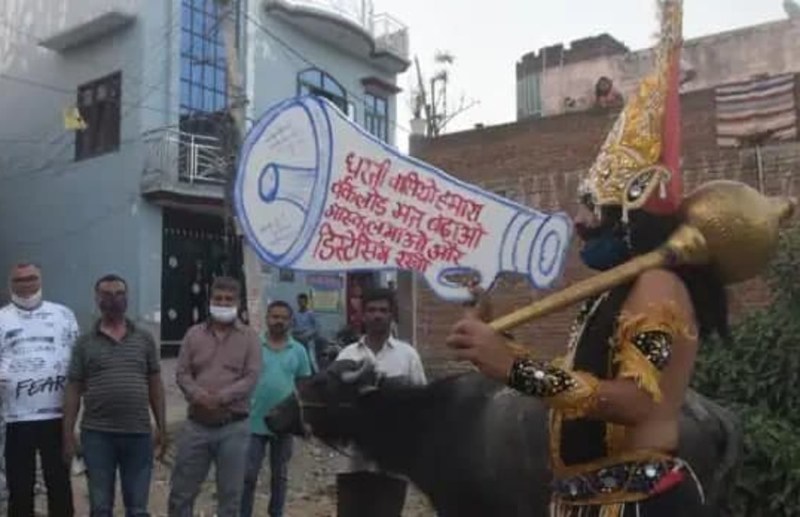 धरती वासियो हमारा
वर्कलोड मत बढाओ
मास्क लगाओ और
डिस्टेंसिंग रखो
FEAR